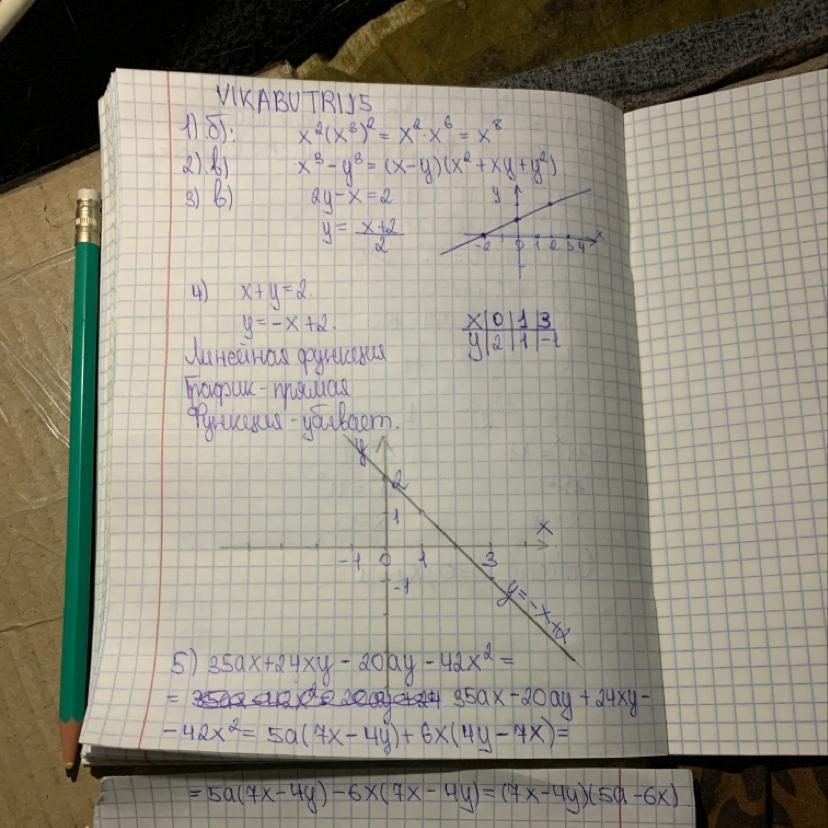 VIKABUTRIJ5
1) б): x²(x³)² = x²·x⁶ = x⁸
2) в) x³ - y³ = (x-y)(x² + xy + y²)
3) в) 2y - x = 2
y = x+2 / 2
y
x
-2 0 1 2 3 4
4) x + y = 2.
y = -x + 2.
x | 0 | 1 | 3
y | 2 | 1 | -1
Линейная функция
График - прямая
Функция - убывает.
y
2
1
x
-1 0 1 3
-1
y = -x+2
5) 35ax + 24xy - 20ay - 42x² =
= 35ax - 20ay + 24xy -
- 42x² = 5a(7x - 4y) + 6x(4y - 7x) =
= 5a(7x - 4y) - 6x(7x - 4y) = (7x - 4y)(5a - 6x)